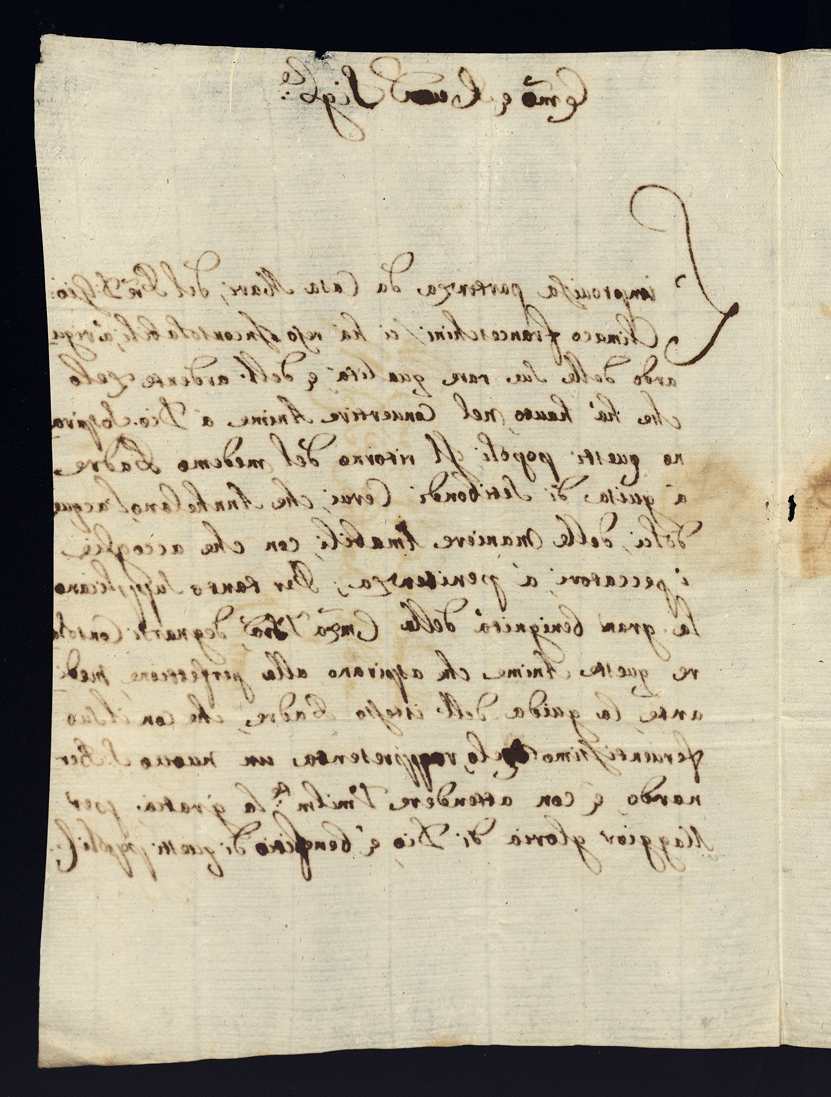 Em̃o e Sig.re
L'improuisa partenza da Casa Mare, del Prẽ D. Gio:
Climaco franceschini ci ha reso Inconsolabili, a' rigu
ardo delle sue rare qualità e dell'ardente zelo
che hà hauto nel Conuertire Anime à Dio. Sospira
no questi popoli Il ritorno del medemo Padre
à guisa di setibondi Cerui, che Annhelano l'acque
dolci, delle maniere Amabili, con che accoglie
i peccatori, à penitenza; Per tanto supplicano
la gran benignità della Em̃za Vr̃a, degnarsi Consola
re queste Anime che aspirano alla perfettione, medi
ante la guida dell'istesso Padre, che con il suo
feruentissimo Zelo, rappresenta un nuouo S. Ber
nardo, e con attendere Vmilm.te la gratia per
Maggior gloria di Dio, e' benefitio di questi popoli